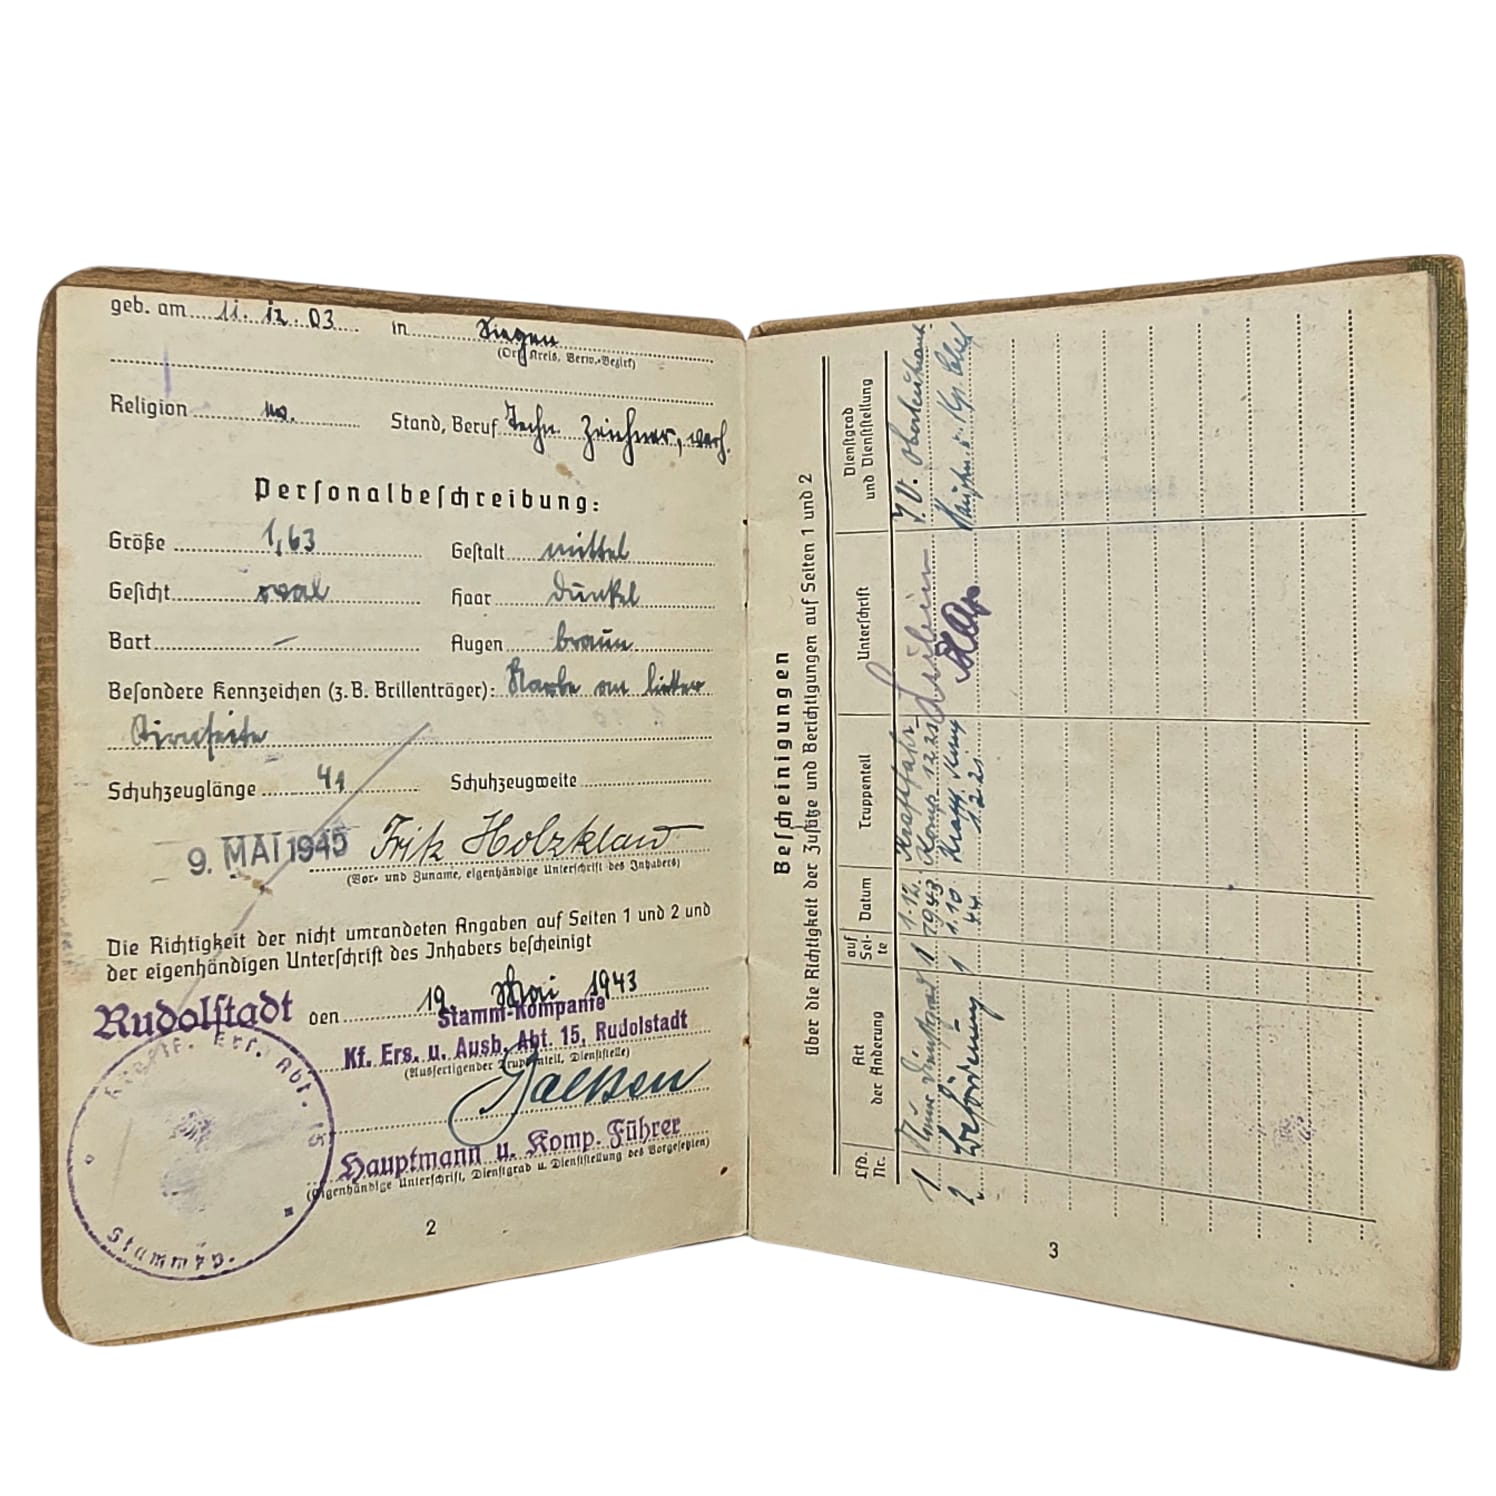 geb. am 11. 12. 03 in Siegen
(Ort, Kreis, Verw.-Bezirk)
Religion Stand, Beruf Techn. Zeichner, verh.
Personalbeschreibung:
Größe 1,63 Gestalt mittel
Gesicht oval Haar dunkel
Bart — Augen braun
Besondere Kennzeichen (z. B. Brillenträger): Narbe an linker
Stirnseite
Schuhzeuglänge 41 Schuhzeugweite
9. MAI 1945 Fritz Holzklau
(Vor- und Zuname, eigenhändige Unterschrift des Inhabers)
Die Richtigkeit der nicht umrandeten Angaben auf Seiten 1 und 2 und
der eigenhändigen Unterschrift des Inhabers bescheinigt
Rudolstadt den 19. Mai 1943
Stamm-Kompanie
Kf. Ers. u. Ausb. Abt. 15, Rudolstadt
(Ausfertigender Truppenteil, Dienststelle)
Hauptmann u. Komp. Führer
(Eigenhändige Unterschrift, Dienstgrad u. Dienststellung des Vorgesetzten)
Ers. Abt. 15
2
Bescheinigungen
über die Richtigkeit der Zusätze und Berichtigungen auf Seiten 1 und 2
Lfd. Nr. Art der Änderung auf Seite Datum Truppenteil Unterschrift Dienstgrad und Dienststellung
1 Dienstgrad 1 1.12. 1943
2. Beförderung 1 1.10 44
3